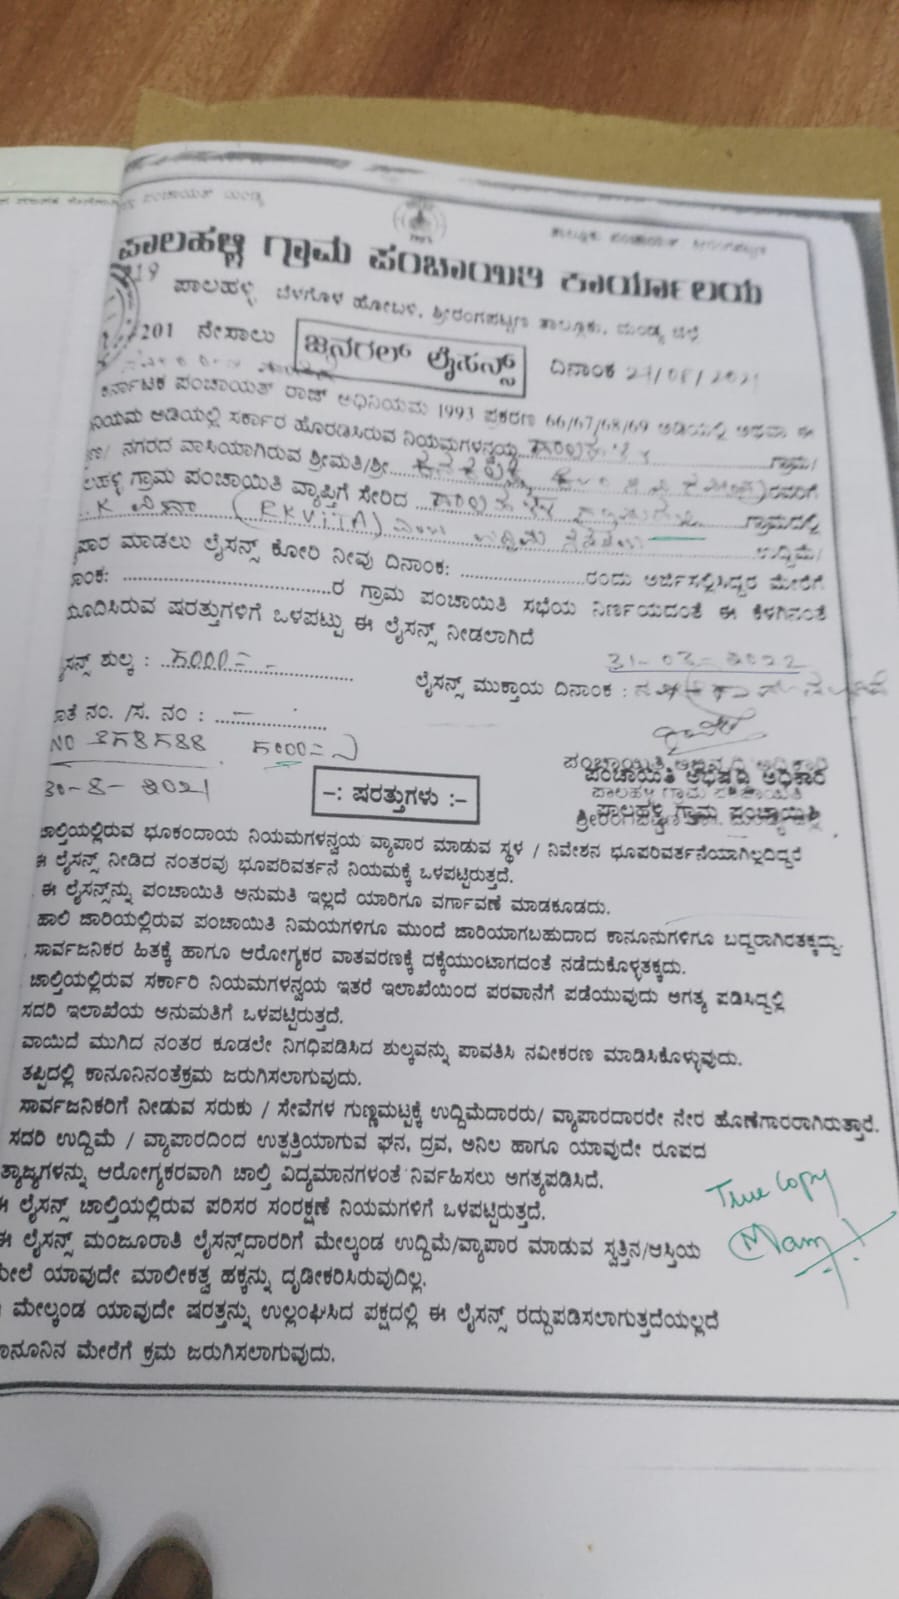 ಪಂಚಾಯತ್ ಮಂಡ್ಯ
ತಾಲ್ಲೂಕು ಪಂಚಾಯತ್ ಶ್ರೀರಂಗಪಟ್ಟಣ
ಪಾಲಹಳ್ಳಿ ಗ್ರಾಮ ಪಂಚಾಯಿತಿ ಕಾರ್ಯಾಲಯ
ಪಾಲಹಳ್ಳಿ ಬೆಳಗೊಳ ಹೋಬಳಿ, ಶ್ರೀರಂಗಪಟ್ಟಣ ತಾಲ್ಲೂಕು, ಮಂಡ್ಯ ಜಿಲ್ಲೆ
201 ನೇಸಾಲು ಜನರಲ್ ಲೈಸನ್ಸ್ ದಿನಾಂಕ
ಕರ್ನಾಟಕ ಪಂಚಾಯತ್ ರಾಜ್ ಅಧಿನಿಯಮ 1993 ಪ್ರಕರಣ 66/67/68/69 ಅಡಿಯಲ್ಲಿ ಅಥವಾ ಈ
ನಿಯಮ ಅಡಿಯಲ್ಲಿ ಸರ್ಕಾರ ಹೊರಡಿಸಿರುವ ನಿಯಮಗಳನ್ವಯ ಗ್ರಾಮ/
ನಗರದ ವಾಸಿಯಾಗಿರುವ ಶ್ರೀಮತಿ/ಶ್ರೀ ರವರಿಗೆ
ಗ್ರಾಮ ಪಂಚಾಯಿತಿ ವ್ಯಾಪ್ತಿಗೆ ಸೇರಿದ ಗ್ರಾಮದಲ್ಲಿ
(RKVITA) ಉದ್ದಿಮೆ/
ಮಾಡಲು ಲೈಸನ್ಸ್ ಕೋರಿ ನೀವು ದಿನಾಂಕ: ......ರಂದು ಅರ್ಜಿಸಲ್ಲಿಸಿದ್ದರ ಮೇರೆಗೆ
......ರ ಗ್ರಾಮ ಪಂಚಾಯಿತಿ ಸಭೆಯ ನಿರ್ಣಯದಂತೆ ಈ ಕೆಳಗಿನಂತೆ
ಷರತ್ತುಗಳಿಗೆ ಒಳಪಟ್ಟು ಈ ಲೈಸನ್ಸ್ ನೀಡಲಾಗಿದೆ
ಶುಲ್ಕ : 5000=
31-03-2022
ಲೈಸನ್ಸ್ ಮುಕ್ತಾಯ ದಿನಾಂಕ :
ನಂ. /ಸ. ನಂ : –
30-8-2021
ಪಂಚಾಯಿತಿ ಅಭಿವೃದ್ಧಿ ಅಧಿಕಾರಿ
ಪಾಲಹಳ್ಳಿ ಗ್ರಾಮ ಪಂಚಾಯಿತಿ
–: ಷರತ್ತುಗಳು :–
ಚಾಲ್ತಿಯಲ್ಲಿರುವ ಭೂಕಂದಾಯ ನಿಯಮಗಳನ್ವಯ ವ್ಯಾಪಾರ ಮಾಡುವ ಸ್ಥಳ / ನಿವೇಶನ ಭೂಪರಿವರ್ತನೆಯಾಗಿಲ್ಲದಿದ್ದರೆ
ಈ ಲೈಸನ್ಸ್ ನೀಡಿದ ನಂತರವು ಭೂಪರಿವರ್ತನೆ ನಿಯಮಕ್ಕೆ ಒಳಪಟ್ಟಿರುತ್ತದೆ.
ಈ ಲೈಸನ್ಸ್‌ನ್ನು ಪಂಚಾಯಿತಿ ಅನುಮತಿ ಇಲ್ಲದೆ ಯಾರಿಗೂ ವರ್ಗಾವಣೆ ಮಾಡಕೂಡದು.
ಹಾಲಿ ಜಾರಿಯಲ್ಲಿರುವ ಪಂಚಾಯಿತಿ ನಿಮಯಗಳಿಗೂ ಮುಂದೆ ಜಾರಿಯಾಗಬಹುದಾದ ಕಾನೂನುಗಳಿಗೂ ಬದ್ದರಾಗಿರತಕ್ಕದ್ದು.
ಸಾರ್ವಜನಿಕರ ಹಿತಕ್ಕೆ ಹಾಗೂ ಆರೋಗ್ಯಕರ ವಾತವರಣಕ್ಕೆ ದಕ್ಕೆಯುಂಟಾಗದಂತೆ ನಡೆದುಕೊಳ್ಳತಕ್ಕದು.
ಚಾಲ್ತಿಯಲ್ಲಿರುವ ಸರ್ಕಾರಿ ನಿಯಮಗಳನ್ವಯ ಇತರೆ ಇಲಾಖೆಯಿಂದ ಪರವಾನೆಗೆ ಪಡೆಯುವುದು ಅಗತ್ಯ ಪಡಿಸಿದ್ದಲ್ಲಿ
ಸದರಿ ಇಲಾಖೆಯ ಅನುಮತಿಗೆ ಒಳಪಟ್ಟಿರುತ್ತದೆ.
ವಾಯಿದೆ ಮುಗಿದ ನಂತರ ಕೂಡಲೇ ನಿಗಧಿಪಡಿಸಿದ ಶುಲ್ಕವನ್ನು ಪಾವತಿಸಿ ನವೀಕರಣ ಮಾಡಿಸಿಕೊಳ್ಳುವುದು.
ತಪ್ಪಿದಲ್ಲಿ ಕಾನೂನಿನಂತೆಕ್ರಮ ಜರುಗಿಸಲಾಗುವುದು.
ಸಾರ್ವಜನಿಕರಿಗೆ ನೀಡುವ ಸರುಕು / ಸೇವೆಗಳ ಗುಣ್ಣಮಟ್ಟಕ್ಕೆ ಉದ್ದಿಮೆದಾರರು/ ವ್ಯಾಪಾರದಾರರೇ ನೇರ ಹೊಣೆಗಾರರಾಗಿರುತ್ತಾರೆ.
ಸದರಿ ಉದ್ದಿಮೆ / ವ್ಯಾಪಾರದಿಂದ ಉತ್ಪತ್ತಿಯಾಗುವ ಘನ, ದ್ರವ, ಅನಿಲ ಹಾಗೂ ಯಾವುದೇ ರೂಪದ
ತ್ಯಾಜ್ಯಗಳನ್ನು ಆರೋಗ್ಯಕರವಾಗಿ ಚಾಲ್ತಿ ವಿದ್ಯಮಾನಗಳಂತೆ ನಿರ್ವಹಿಸಲು ಅಗತ್ಯಪಡಿಸಿದೆ.
ಈ ಲೈಸನ್ಸ್ ಚಾಲ್ತಿಯಲ್ಲಿರುವ ಪರಿಸರ ಸಂರಕ್ಷಣೆ ನಿಯಮಗಳಿಗೆ ಒಳಪಟ್ಟಿರುತ್ತದೆ.
True Copy
ಈ ಲೈಸನ್ಸ್ ಮಂಜೂರಾತಿ ಲೈಸನ್ಸ್‌ದಾರರಿಗೆ ಮೇಲ್ಕಂಡ ಉದ್ದಿಮೆ/ವ್ಯಾಪಾರ ಮಾಡುವ ಸ್ವತ್ತಿನ/ಆಸ್ತಿಯ
ಮೇಲೆ ಯಾವುದೇ ಮಾಲೀಕತ್ವ ಹಕ್ಕನ್ನು ದೃಢೀಕರಿಸಿರುವುದಿಲ್ಲ.
ಮೇಲ್ಕಂಡ ಯಾವುದೇ ಷರತ್ತನ್ನು ಉಲ್ಲಂಘಿಸಿದ ಪಕ್ಷದಲ್ಲಿ ಈ ಲೈಸನ್ಸ್ ರದ್ದುಪಡಿಸಲಾಗುತ್ತದೆಯಲ್ಲದೆ
ಕಾನೂನಿನ ಮೇರೆಗೆ ಕ್ರಮ ಜರುಗಿಸಲಾಗುವುದು.